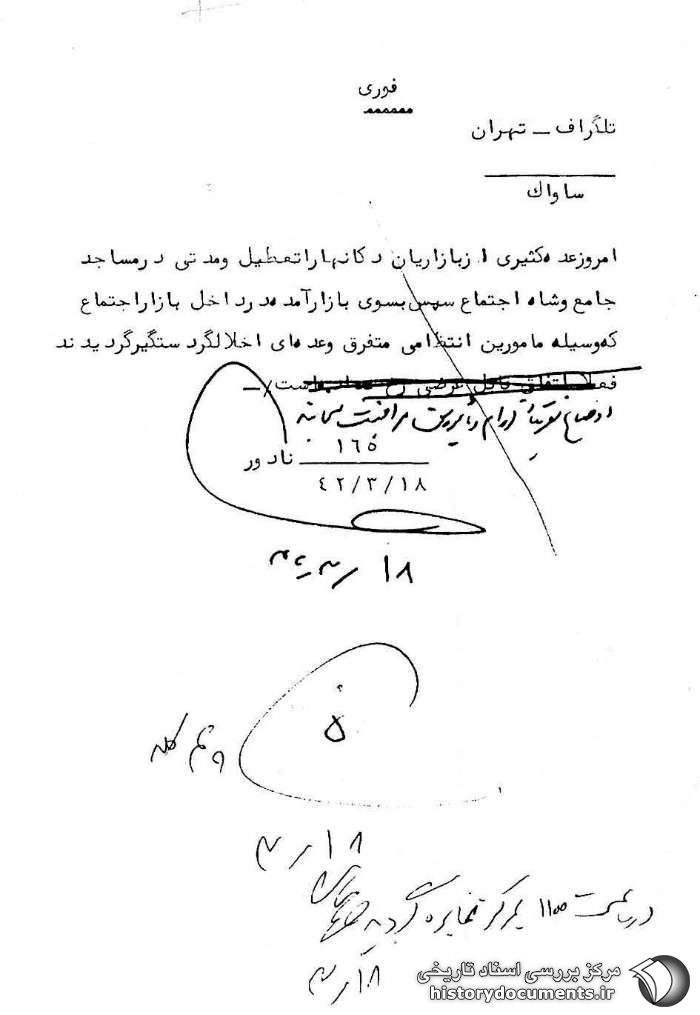 فوری
تلگراف ــ تهران
ساواك
امروز عده کثیری از بازاریان دکانها را تعطیل ومدتی در مساجد
جامع وشاه اجتماع سپس بسوی بازار آمده در داخل بازار اجتماع
که وسیله مامورین انتظامی متفرق وعده ای اخلالگر دستگیر گردیدند
اوضاع تقریباً آرام
۱٦٥
نادور
٤٢/٣/١٨
۱۸ / ۳ / ۴۲
۵
۱۸ / ۳
در ساعت ۱۱۰۰ بمرکز مخابره گردید
۱۸ / ۳
مرکز بررسی اسناد تاریخی
historydocuments.ir